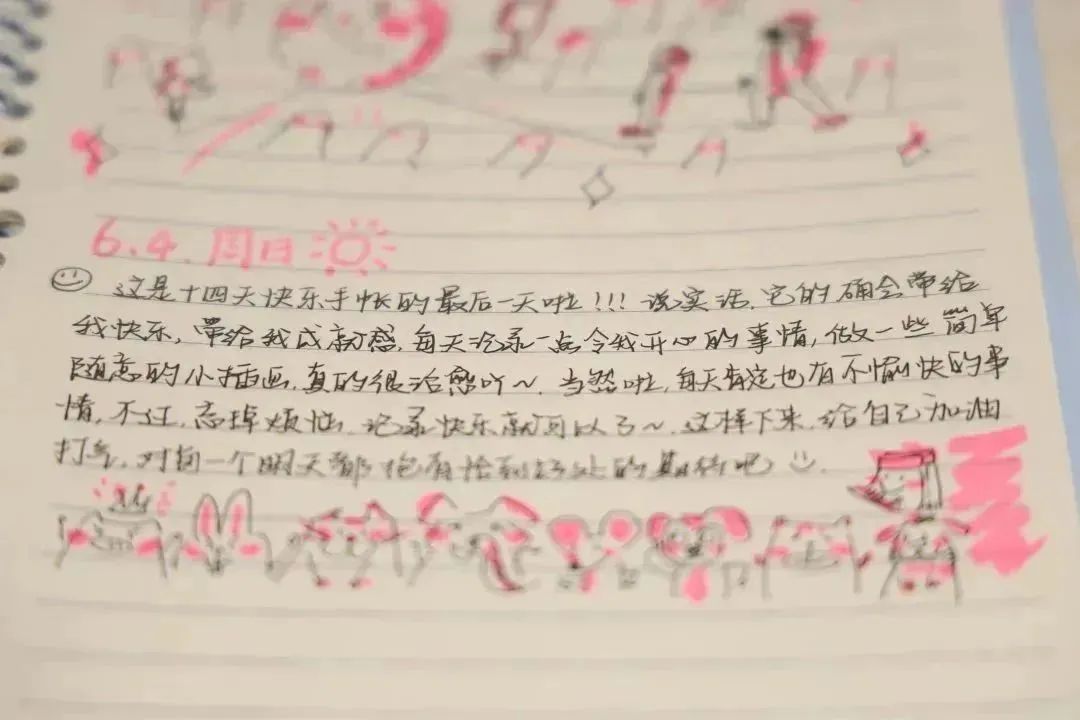 6.4. 周日
这是十四天快乐手帐的最后一天啦!!! 说实话,它的确会带给
我快乐,带给我成就感,每天记录一点令我开心的事情,做一些简单
随意的小插画,真的很治愈吖~. 当然啦,每天肯定也有不愉快的事
情,不过,忘掉烦恼,记录快乐就可以了~. 这样下来,给自己加油
打气,对每一个明天都抱有恰到好处的期待吧